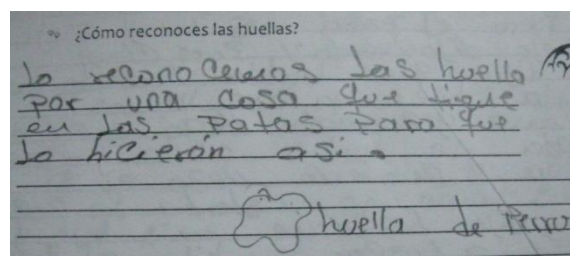 ¿Cómo reconoces las huellas?
lo reconocemos las huella
por una cosa que tiene
en las patas para que
lo hicieron asi.
huella de Perro